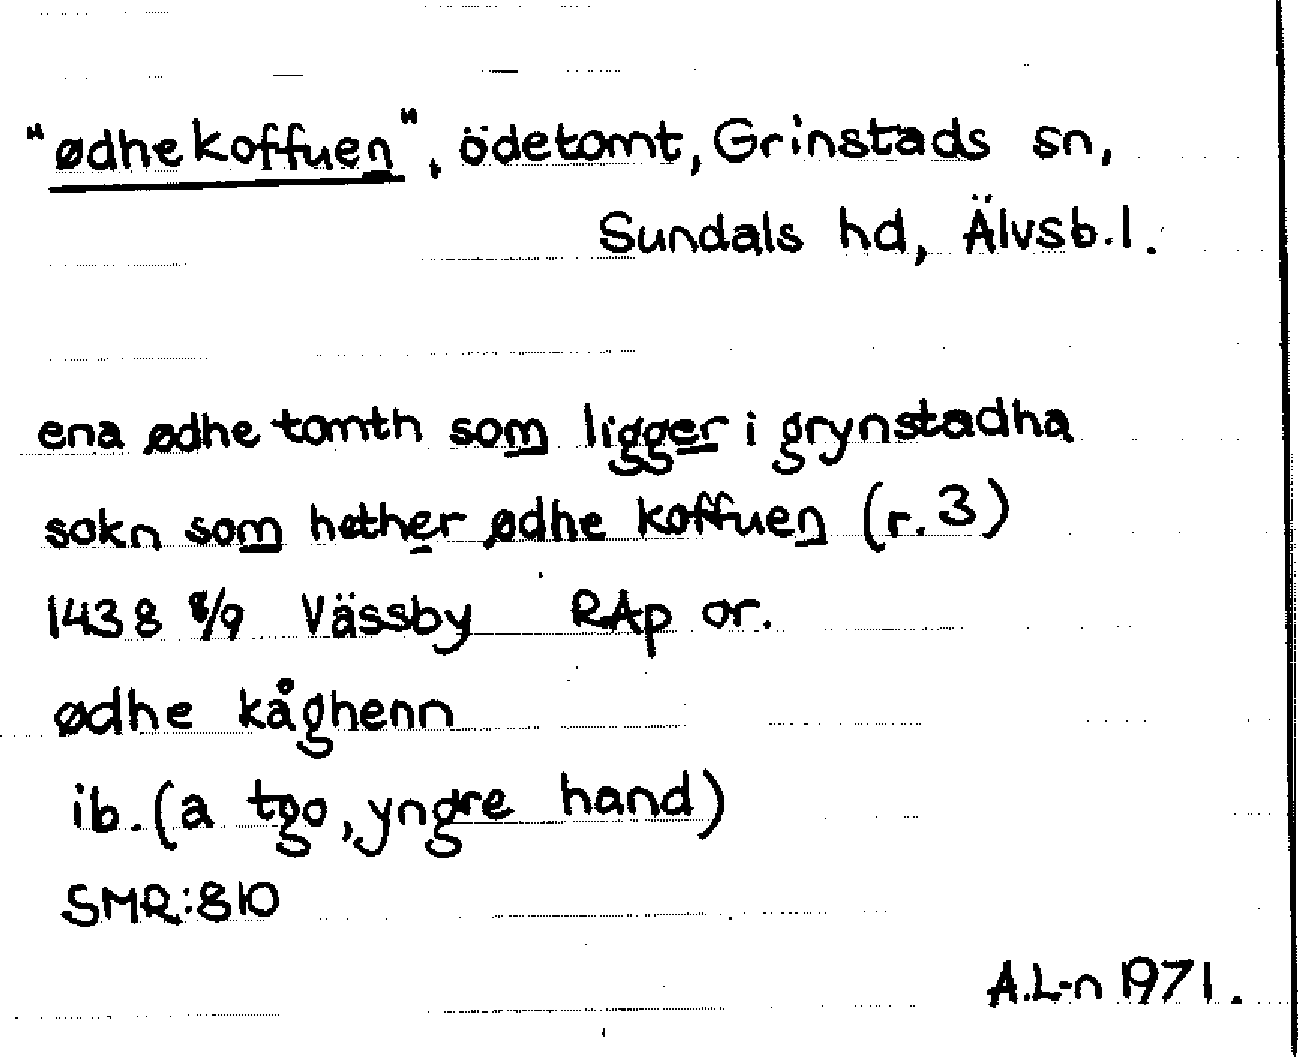 "ødhe koffuen", ödetomt, Grinstads sn,
Sundals hd, Älvsb.l.
ena ødhe tomth som ligger i grynstadha
sokn som hether ødhe koffuen (r. 3)
1438 8/9 Vässby RAp or.
ødhe kåghenn
ib. (a tgo, yngre hand)
SMR:810
A.L-n 1971.